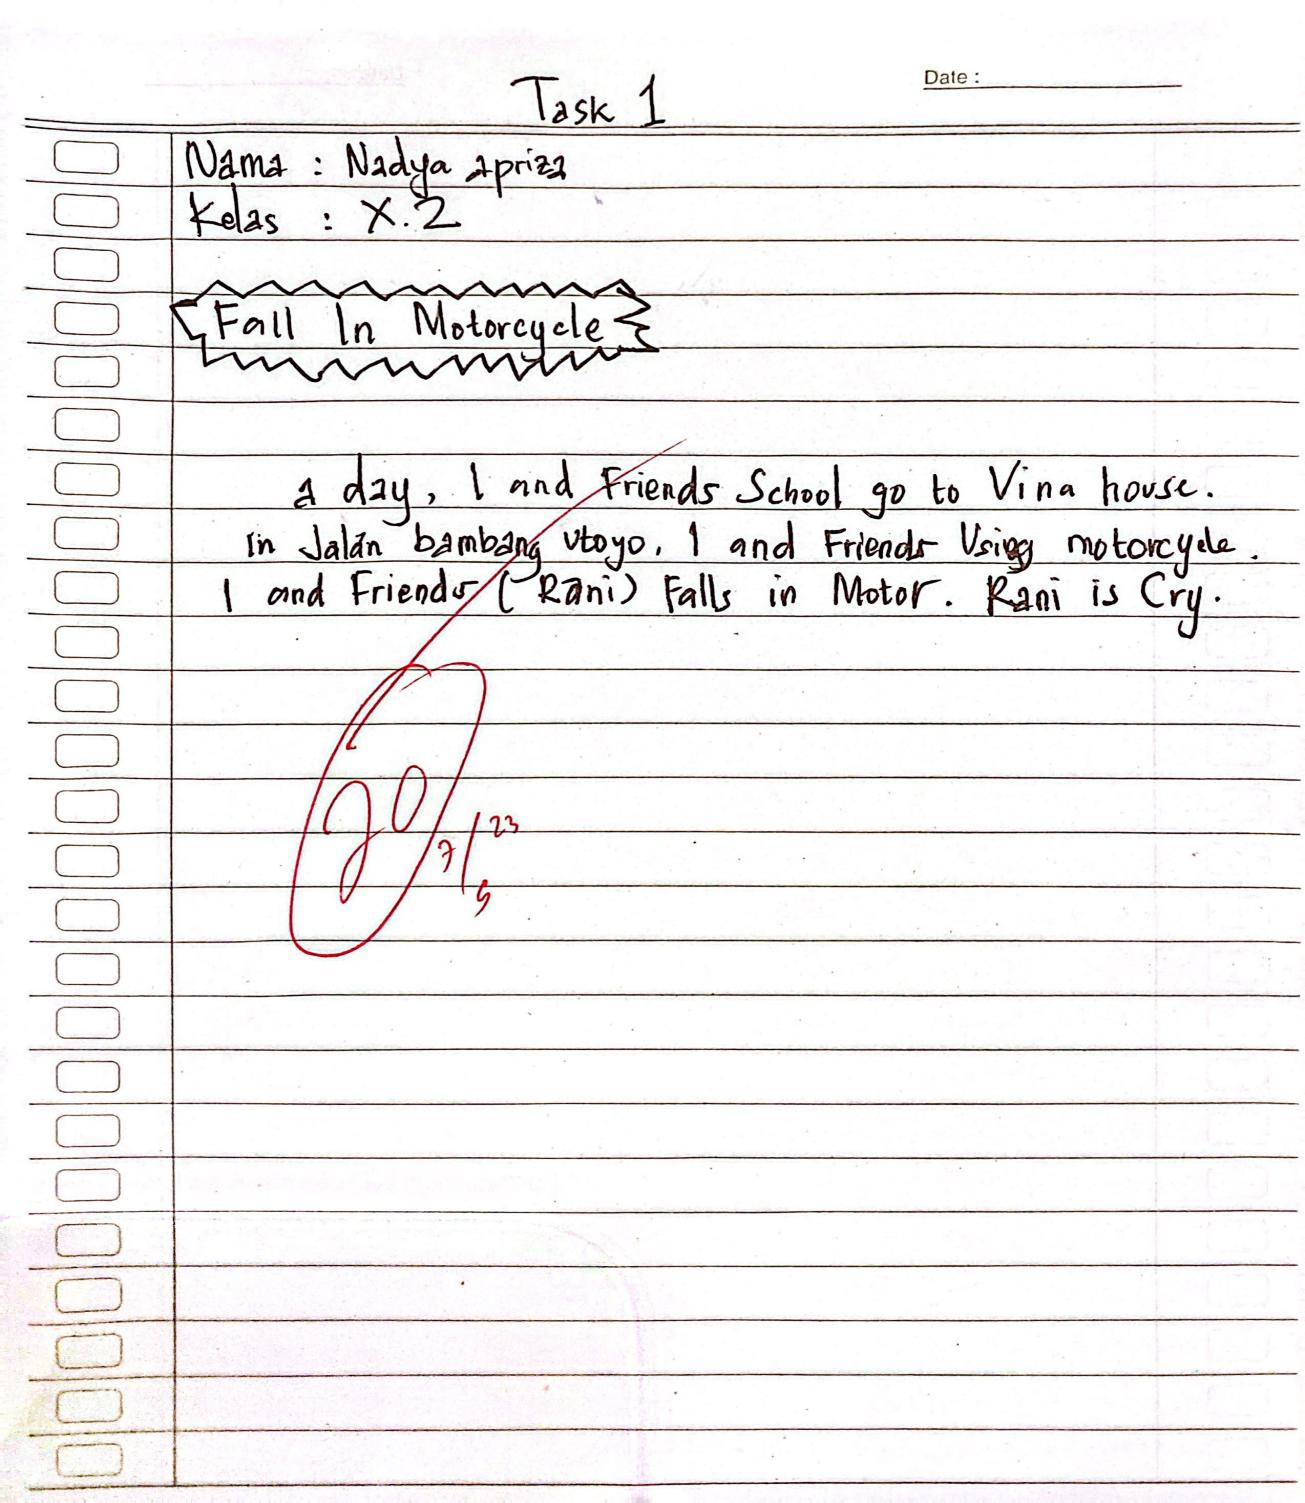 Date :
Task 1
Nama : Nadya apriza
Kelas : X.2
Fall In Motorcycle
a day, I and Friends School go to Vina house.
in Jalan bambang utoyo. I and Friends Using motorcycle.
I and Friends (Rani) Falls in Motor. Rani is Cry.
7/5 23